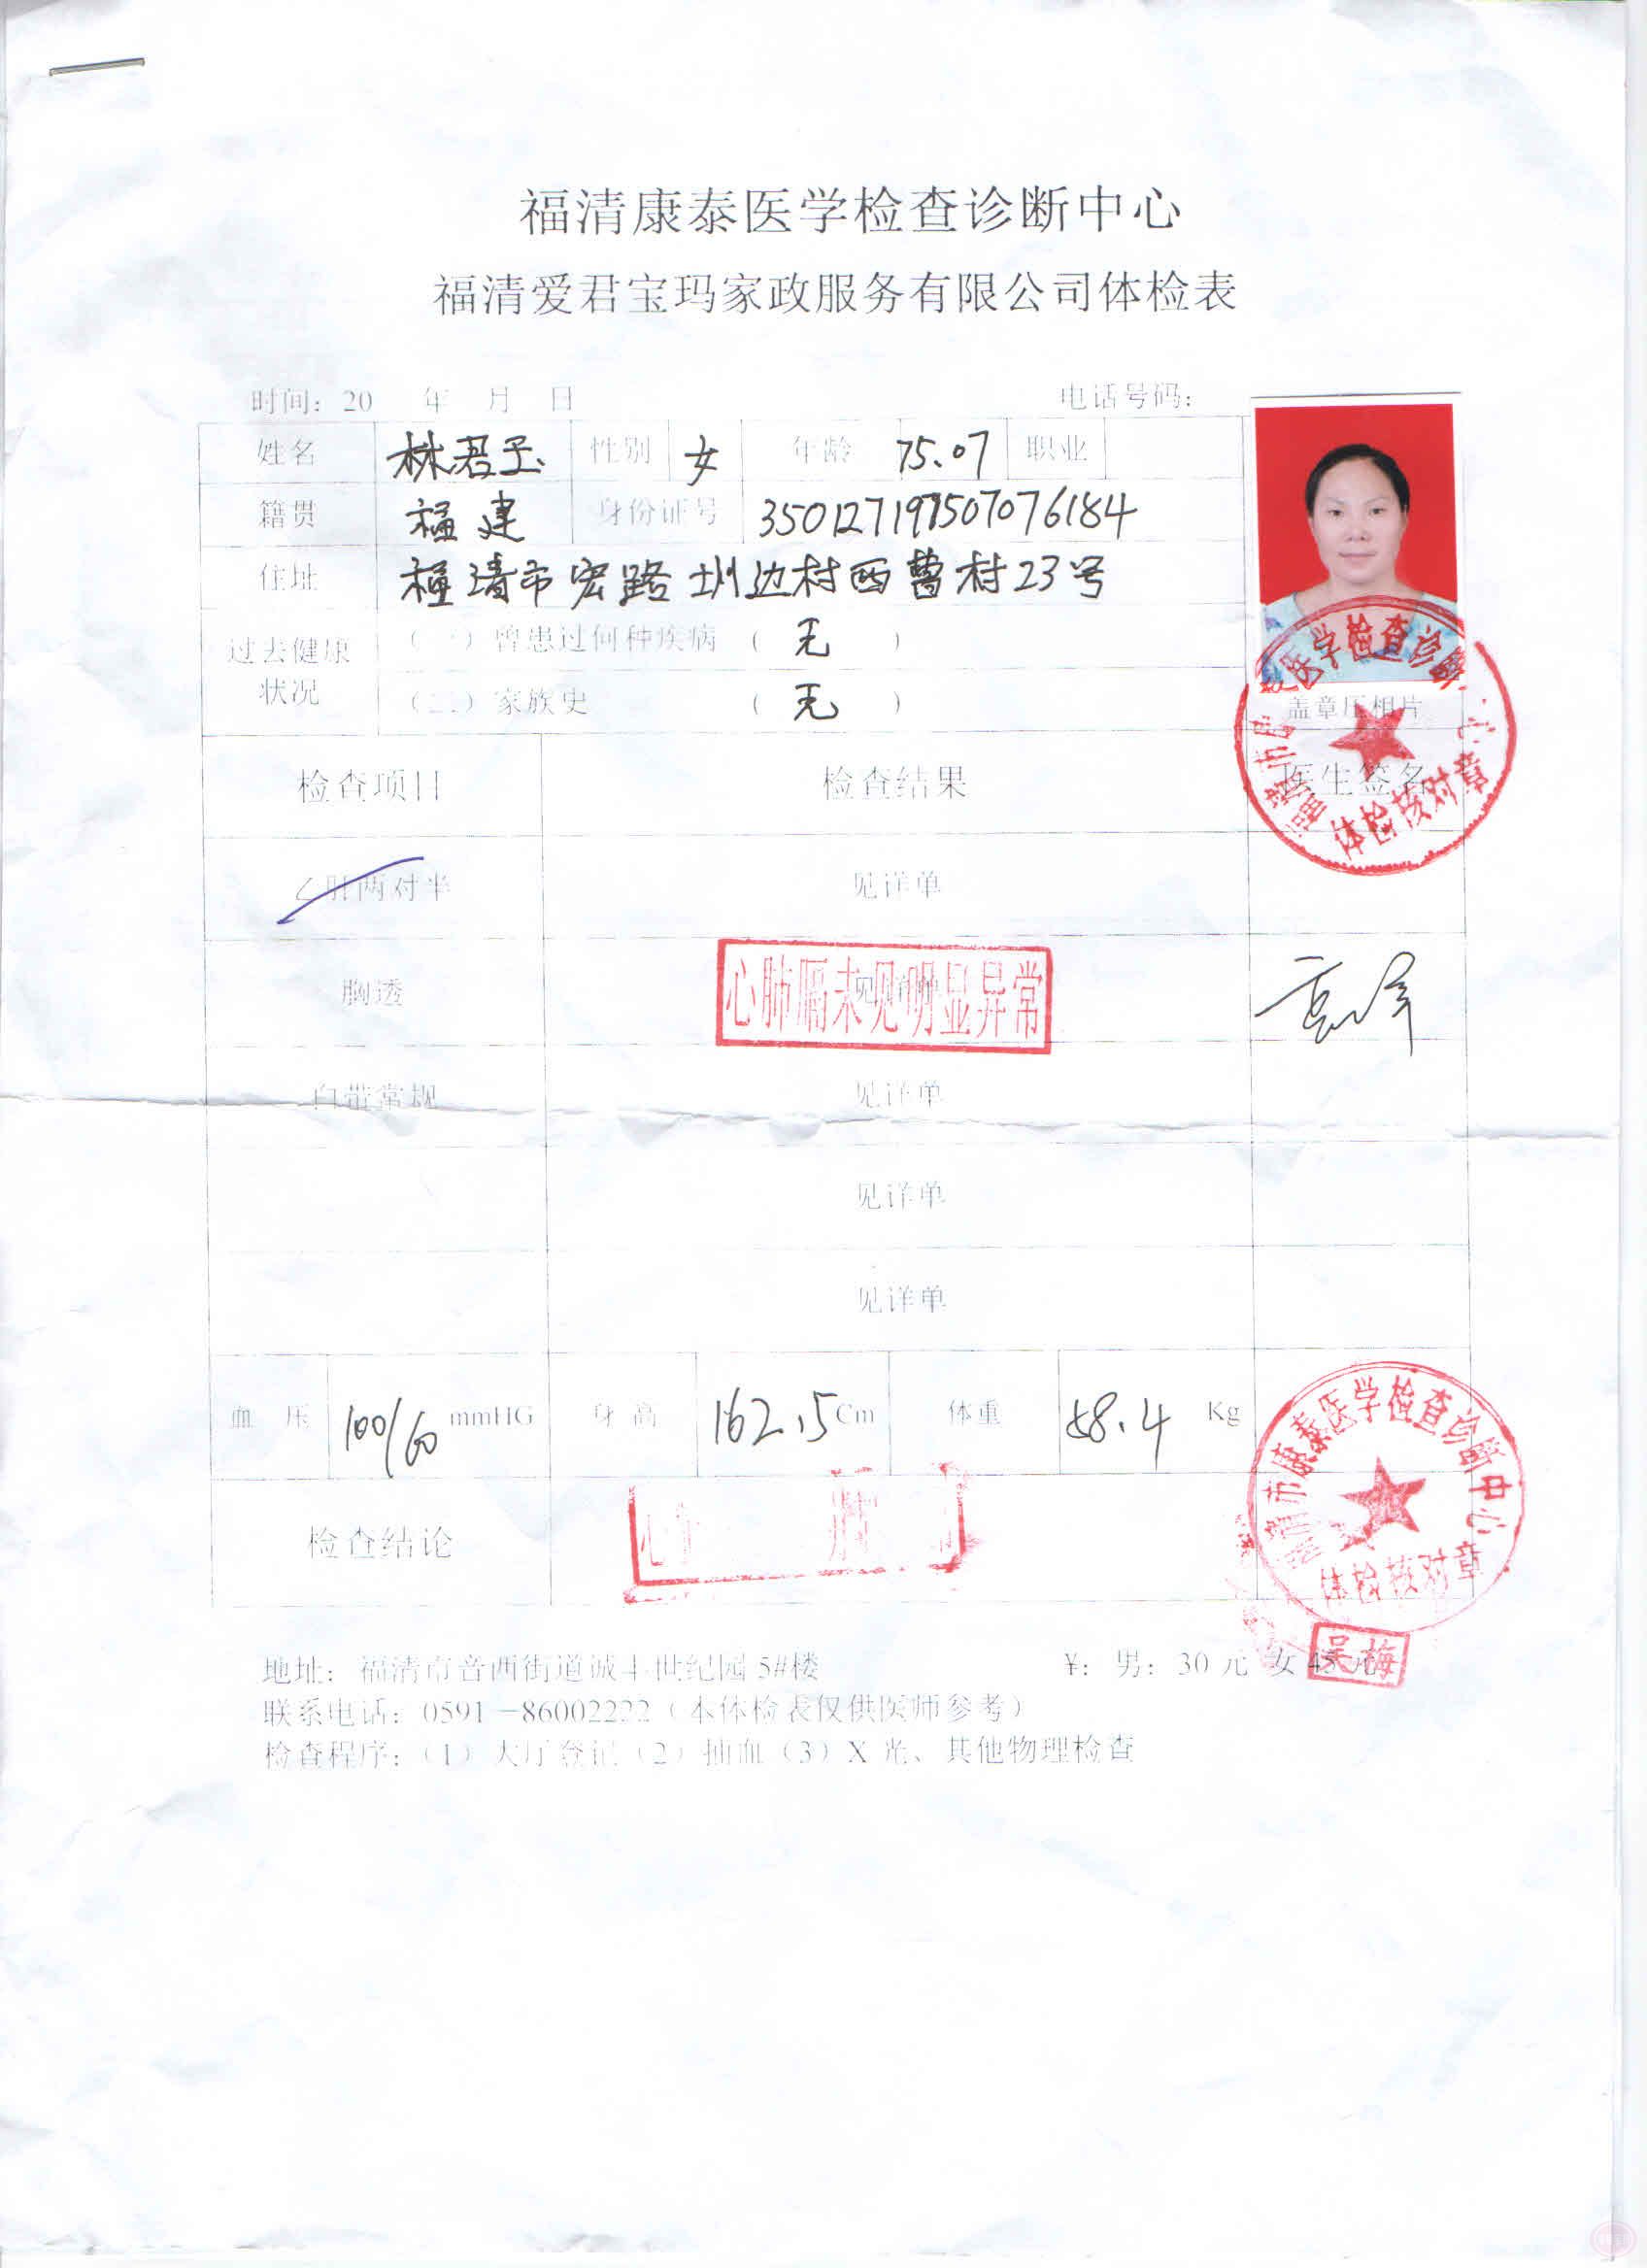 福清康泰医学检查诊断中心
福清爱君宝玛家政服务有限公司体检表
时间：20 年 月 日 电话号码：
姓名 林君玉 性别 女 年龄 75.07 职业
籍贯 福建 身份证号 350127197507076184
住址 福清市宏路圳边村西曹村23号
过去健康状况 （一）曾患过何种疾病 （ 无 ）
（二）家族史 （ 无 ）
盖章压相片
福清市康泰医学检查诊断中心
体检核对章
检查项目 检查结果 医生签名
乙肝两对半 见详单
胸透 见详单
心肺膈未见明显异常
白带常规 见详单
见详单
见详单
血 压 100/60 mmHG 身 高 162.5 Cm 体重 58.4 Kg
检查结论
福清市康泰医学检查诊断中心
体检核对章
吴梅
地址：福清市音西街道诚丰世纪园 5#楼 ¥：男：30 元 女 45 元
联系电话：0591－86002222（本体检表仅供医师参考）
检查程序：（1）大厅登记（2）抽血（3）X 光、其他物理检查